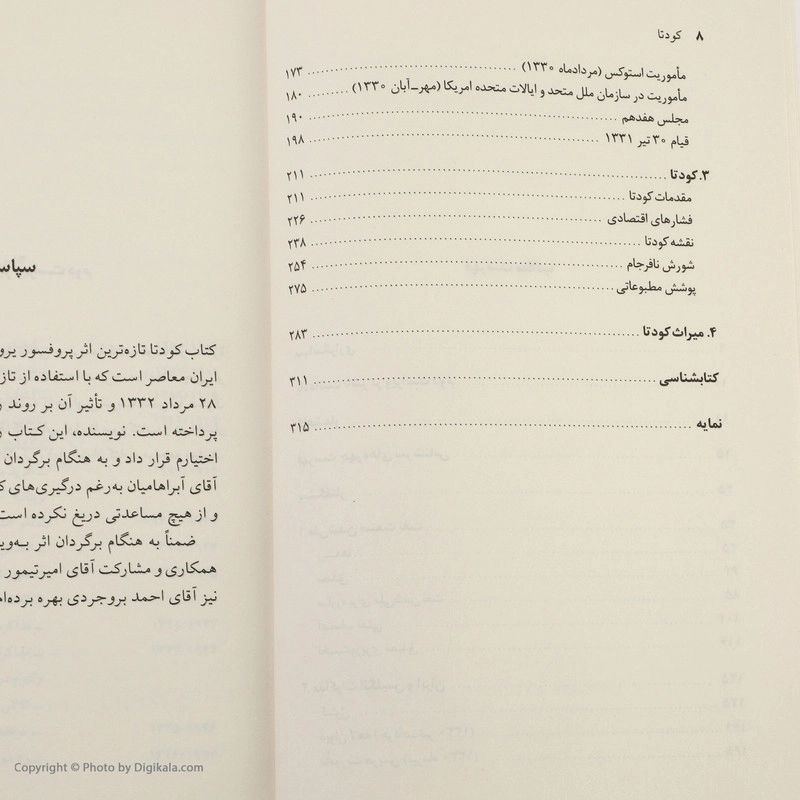 ۸ کودتا
مأموریت استوکس (مردادماه ۱۳۳۰) ۱۷۳
مأموریت در سازمان ملل متحد و ایالات متحده امریکا (مهر–آبان ۱۳۳۰) ۱۸۰
مجلس هفدهم ۱۹۰
قیام ۳۰ تیر ۱۳۳۱ ۱۹۸
۳. کودتا ۲۱۱
مقدمات کودتا ۲۱۱
فشارهای اقتصادی ۲۲۶
نقشه کودتا ۲۳۸
شورش نافرجام ۲۵۴
پوشش مطبوعاتی ۲۷۵
۴. میراث کودتا ۲۸۳
کتابشناسی ۳۱۱
نمایه ۳۱۵
کتاب کودتا تازه‌ترین اثر پروفسور
ایران معاصر است که با استفاده از
۲۸ مرداد ۱۳۳۲ و تأثیر آن بر روند
پرداخته است. نویسنده، این کتاب
اختیارم قرار داد و به هنگام برگردان
آقای آبراهامیان به‌رغم درگیری‌های
و از هیچ مساعدتی دریغ نکرده است
ضمناً به هنگام برگردان اثر
همکاری و مشارکت آقای امیرتیمور
نیز آقای احمد بروجردی بهره
Copyright © Photo by Digikala.com